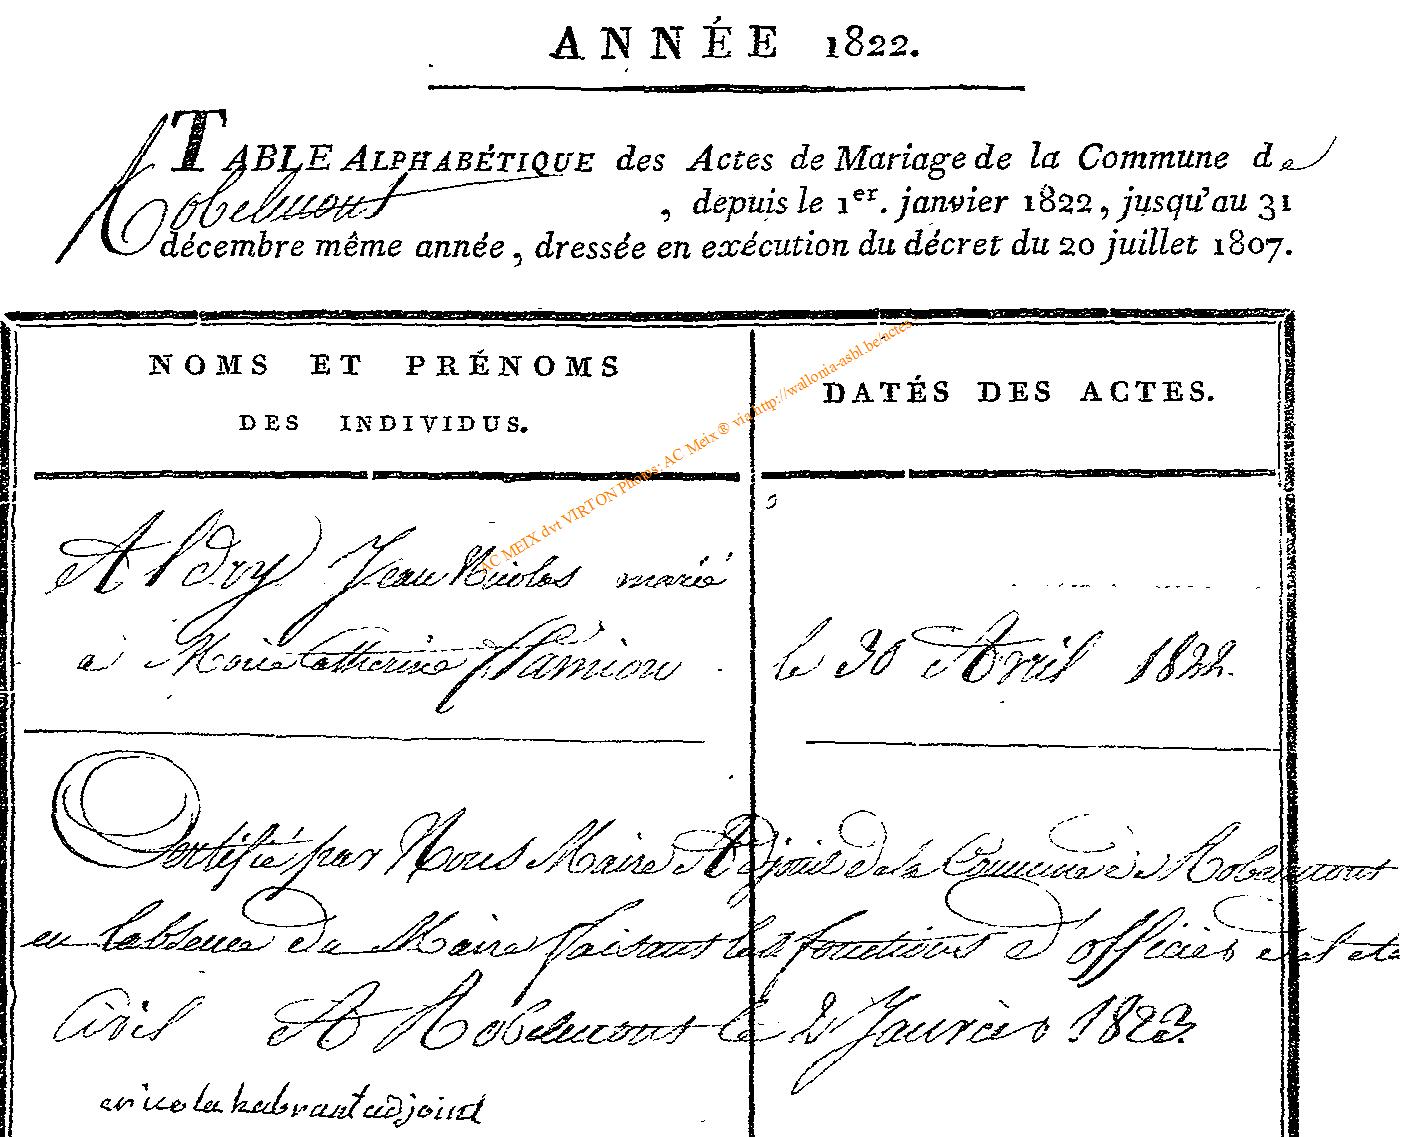 ANNÉE 1822.
TABLE ALPHABÉTIQUE des Actes de Mariage de la Commune de
Robelmont, depuis le 1er. janvier 1822, jusqu'au 31
décembre même année, dressée en exécution du décret du 20 juillet 1807.
NOMS ET PRÉNOMS
DES INDIVIDUS.
DATÉS DES ACTES.
AC MEIX dvt VIRTON Photos: AC Meix ® via http://wallonia-asbl.be/actes
Aldry Jean Nicolas marié
à Marie Catherine
le 30 Avril 1822.
Certifié par Nous Maire Adjoint de la Commune de Robelmont
en labsence du Maire faisant les fonctions d'officier
Civil A Robelmont le 2 Janvier 1823.
habrant adjoint